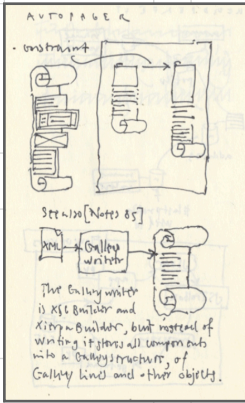 AUTOPAGER
· constraint
See also [Notes 85]
XML
Galley
writer
The Galley writer
is XSL Builder and
Builder, but instead of
writing it stores all components
into a Galley structure, of
Galley lines and other objects.